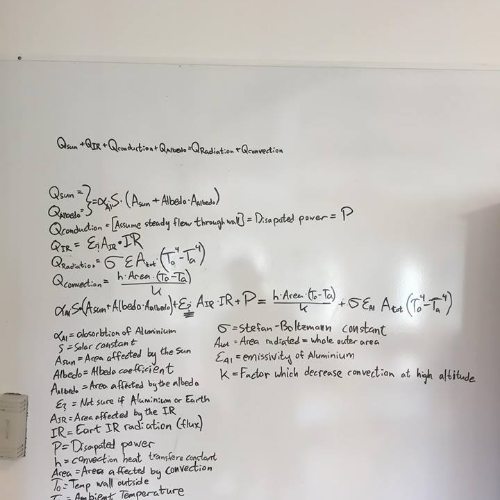 Qsun + QIR + Qconduction + QAlbedo = QRadiation + Qconvection
Qsun =
QAlbedo = } = αAl S · (Asun + Albedo · AAlbedo)
Qconduction = [Assume steady flew through wall] = Disapated power = P
QIR = E? AIR · IR
QRadiation = σ E Atot (To⁴ - Ta⁴)
Qconvection = h · Area · (To - Ta) / K
αAl S · (Asun + Albedo · AAlbedo) + E? AIR · IR + P = h · Area · (To - Ta) / K + σ EAl Atot (To⁴ - Ta⁴)
αAl = absorbtion of Aluminium
S = Solar constant
Asun = Area affected by the Sun
Albedo = Albedo coefficient
AAlbedo = Area affected by the albedo
E? = Not sure if Aluminium or Earth
AIR = Area affected by the IR
IR = Eart IR radiation (flux)
P = Disapated power
h = convection heat transfere constant
Area = Area affected by convection
To = Temp wall outside
Ambient Temperature
σ = Stefan-Boltzmann constant
= Area radiated = whole outer area
EAl = emissivity of Aluminium
K = Factor which decrease convection at high altitude